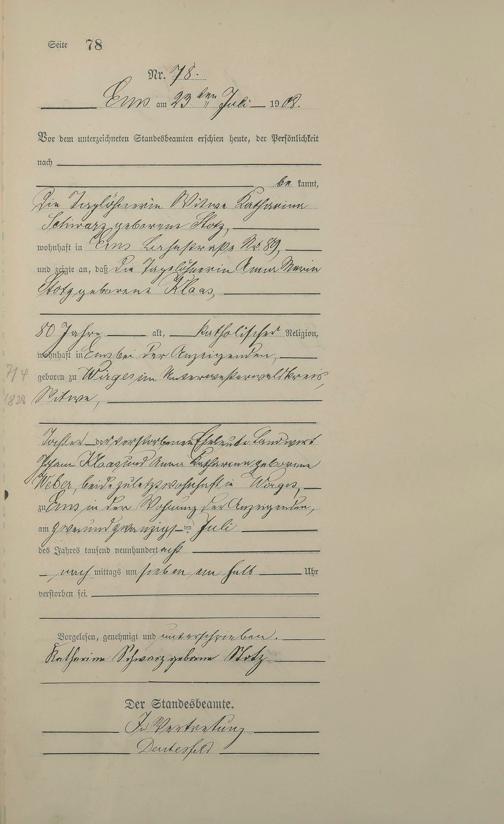 Seite 78
Nr. 78.
Ems am 23ten Juli 1908.
Vor dem unterzeichneten Standesbeamten erschien heute, der Persönlichkeit
nach
be kannt,
Die Taglöhnerin Witwe Katharina
Schwarz geborene Stotz,
wohnhaft in Ems Nr. 89,
und zeigte an, daß Die Tagelöhnerin Anna Maria
Stotz geborene Klaas,
80 Jahre alt, katholischer Religion,
wohnhaft in Ems bei der Anzeigenden,
geboren zu Wirges im Unterwesterwaldkreis,
7/4
1828
Witwe,
Tochter der verstorbenen Eheleute Landwirt
Johann Klaas und Anna Katharina geborene
Weber, beide zuletzt wohnhaft in Wirges,
zu Ems in der Wohnung der Anzeigenden,
am zweiundzwanzigsten Juli
des Jahres tausend neunhundert acht
nach mittags um sieben ein halb Uhr
verstorben sei.
Vorgelesen, genehmigt und unterschrieben.
Katharina Schwarz geborne Stotz
Der Standesbeamte.
In Vertretung